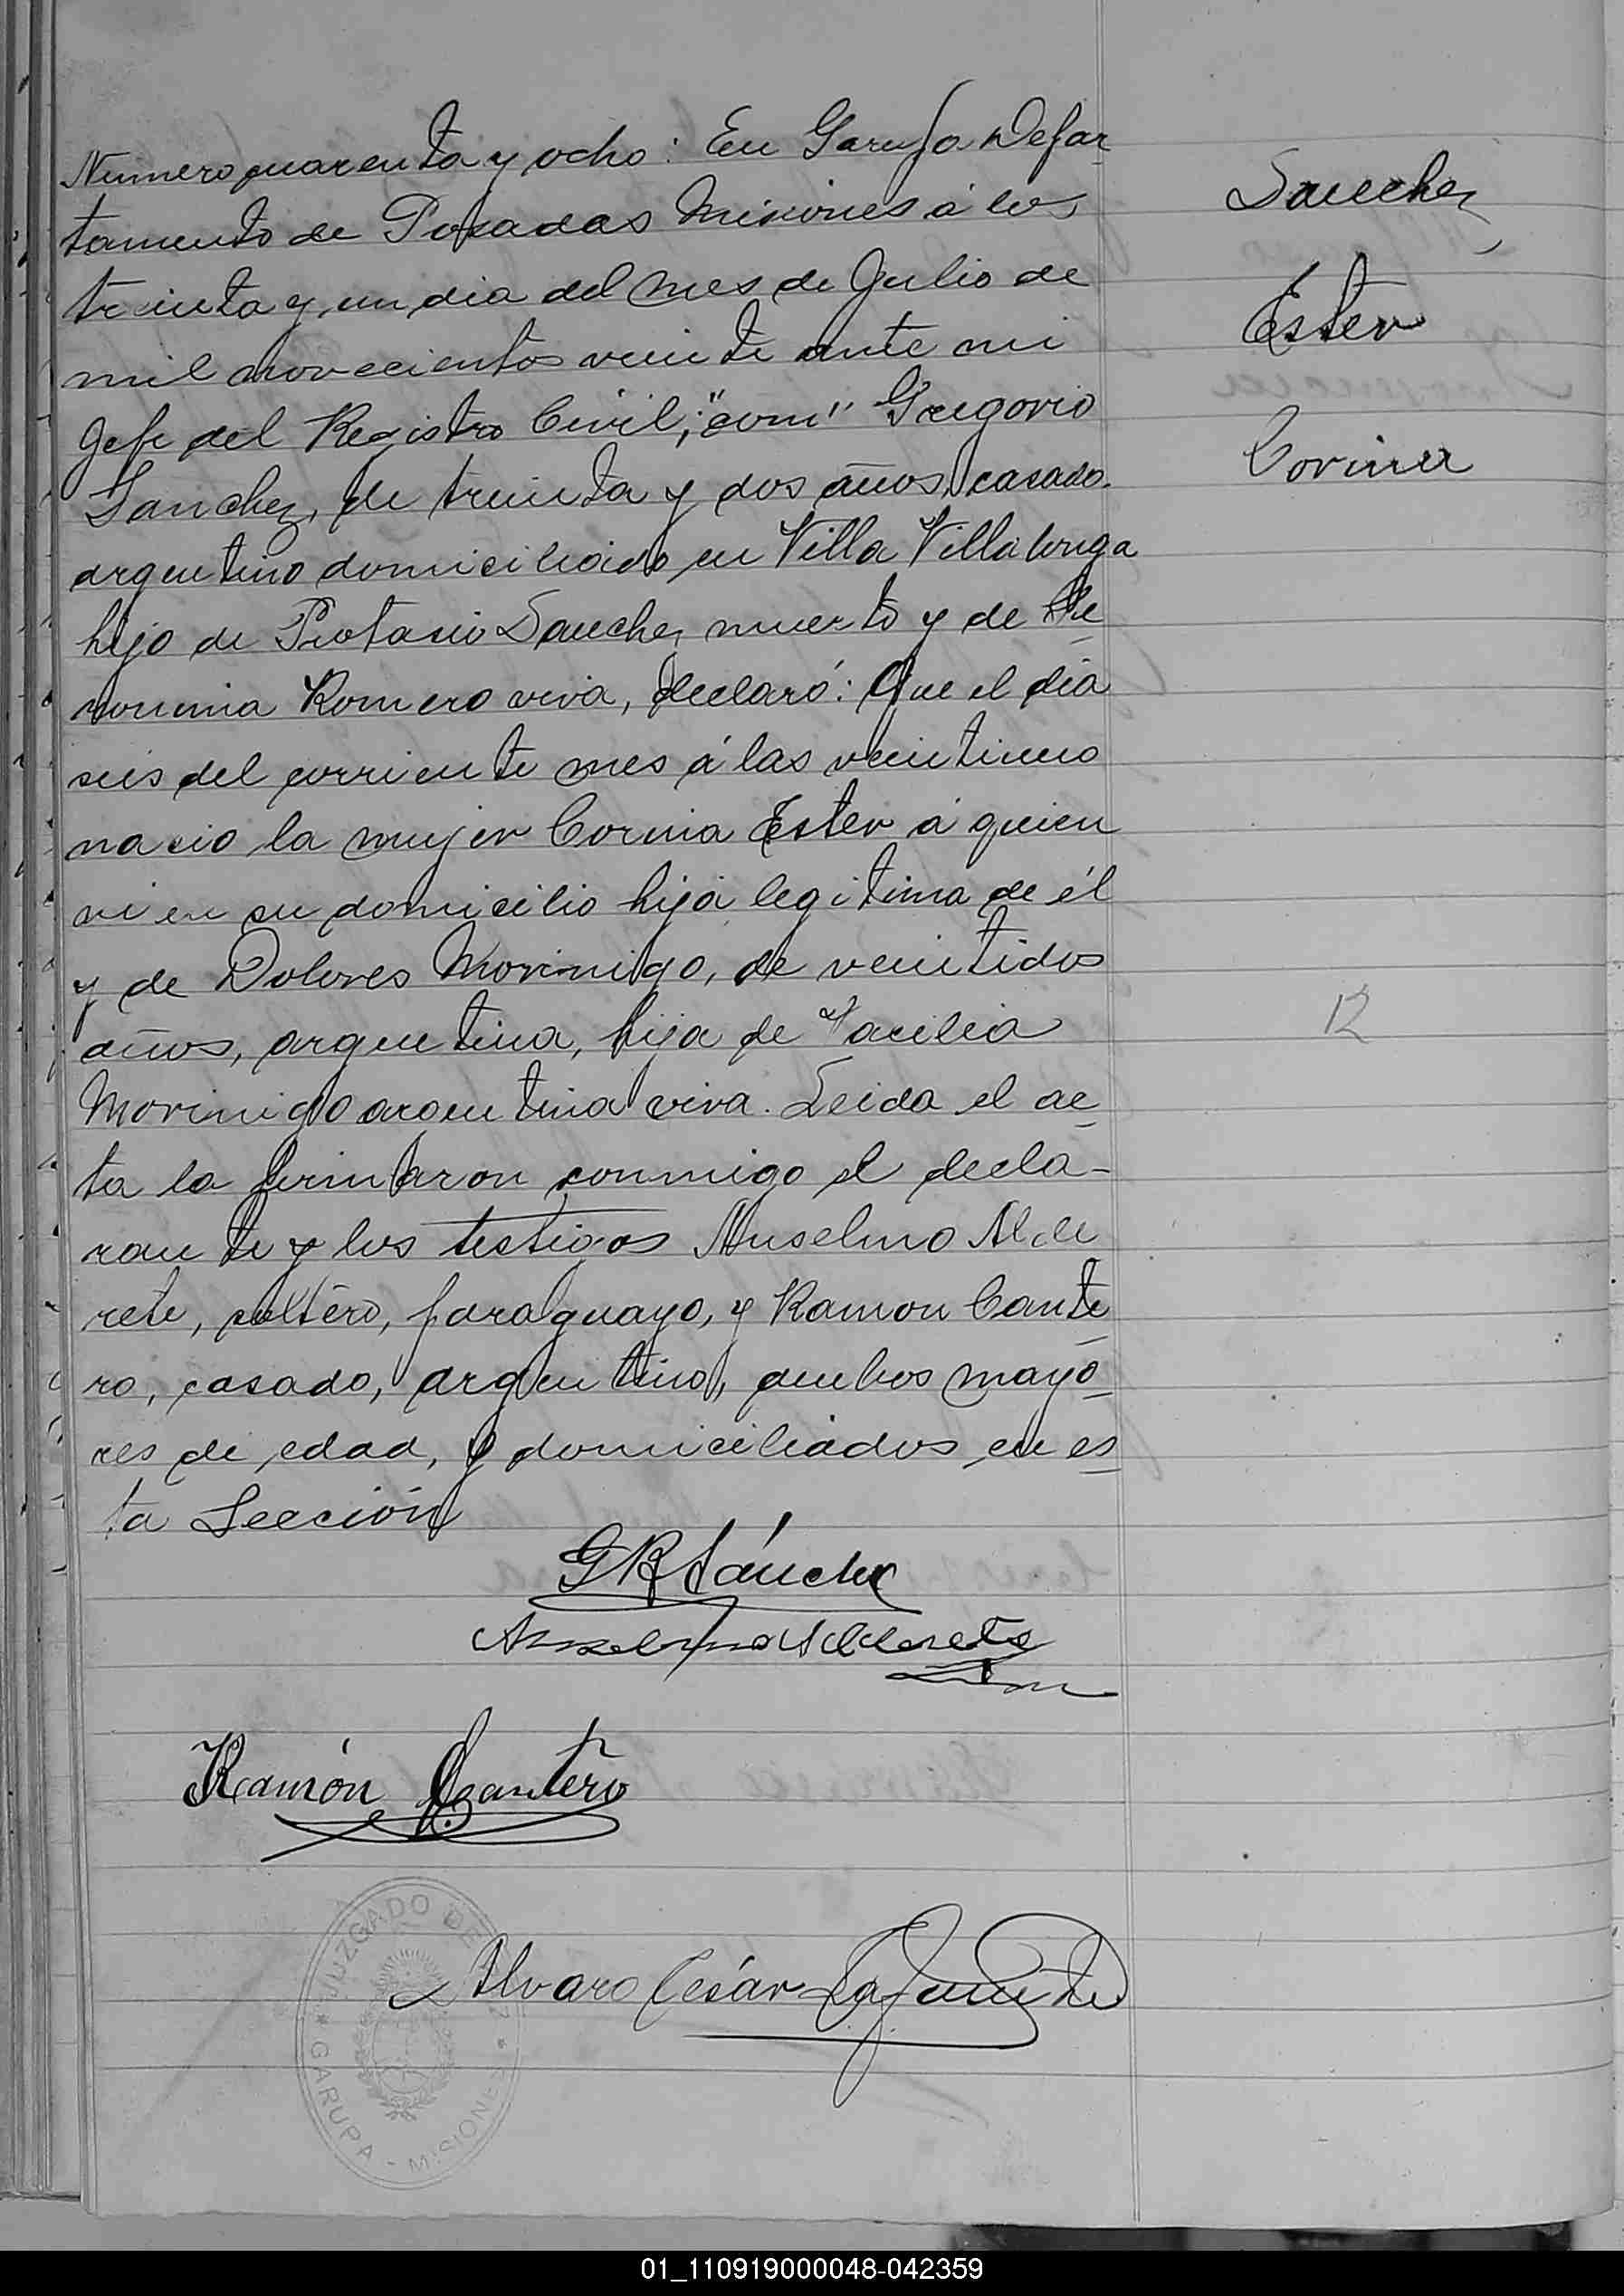 Numero cuarenta y ocho: En Garupa Depar-
tamento de Posadas Misiones á los
treinta y un dia del mes de Julio de
mil novecientos veinte ante mi
Jefe del Registro Civil, "com" Gregorio
Sanchez, de treinta y dos años, casado.
argentino domiciliado en Villa Villalonga
hijo de Protasio Sanchez muerto y de
Romero viva, declaró: Que el dia
seis del corriente mes á las veintiuno
nacio la mujer Corina Ester á quien
vi en su domicilio hija legitima de él
y de Dolores Morinigo, de veintidos
años, argentina, hija de
Morinigo argentina viva. Leida el ac-
ta la firmaron conmigo el decla-
rante y los testigos Anselmo Alde
rete, soltero, paraguayo, y Ramon Cante-
ro, casado, argentino, ambos mayo-
res de edad, y domiciliados en es-
ta Sección
GR Sánchez
Anselmo Alderete
Ramón Cantero
Alvaro César Lafuente
JUZGADO DE
GARUPA - MISIONES
Sanchez,
Ester
Corina
12
01_110919000048-042359